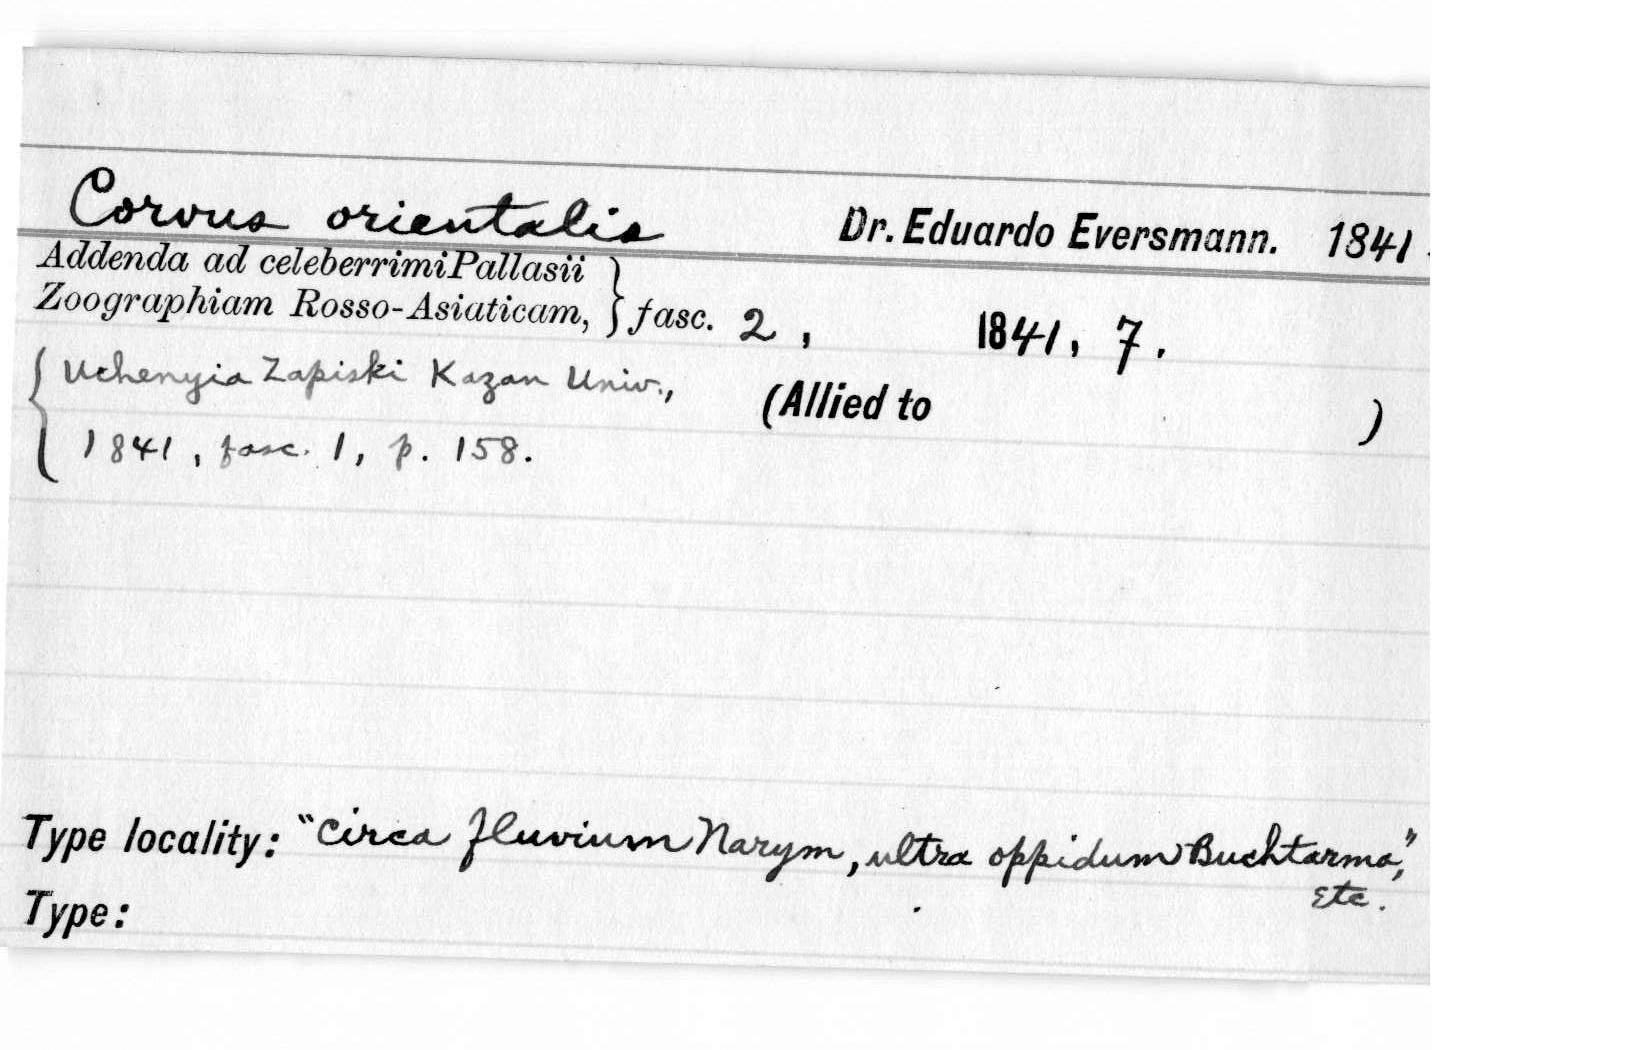 Corvus orientalis Dr. Eduardo Eversmann. 1841.
Addenda ad celeberrimi Pallasii
Zoographiam Rosso-Asiaticam, } fasc. 2, 1841, 7.
{ Uchenyia Zapiski Kazan Univ.,
(Allied to )
1841, fasc. 1, p. 158.
Type locality: "Circa fluvium Narym, ultra oppidum Buchtarma,"
etc.
Type: